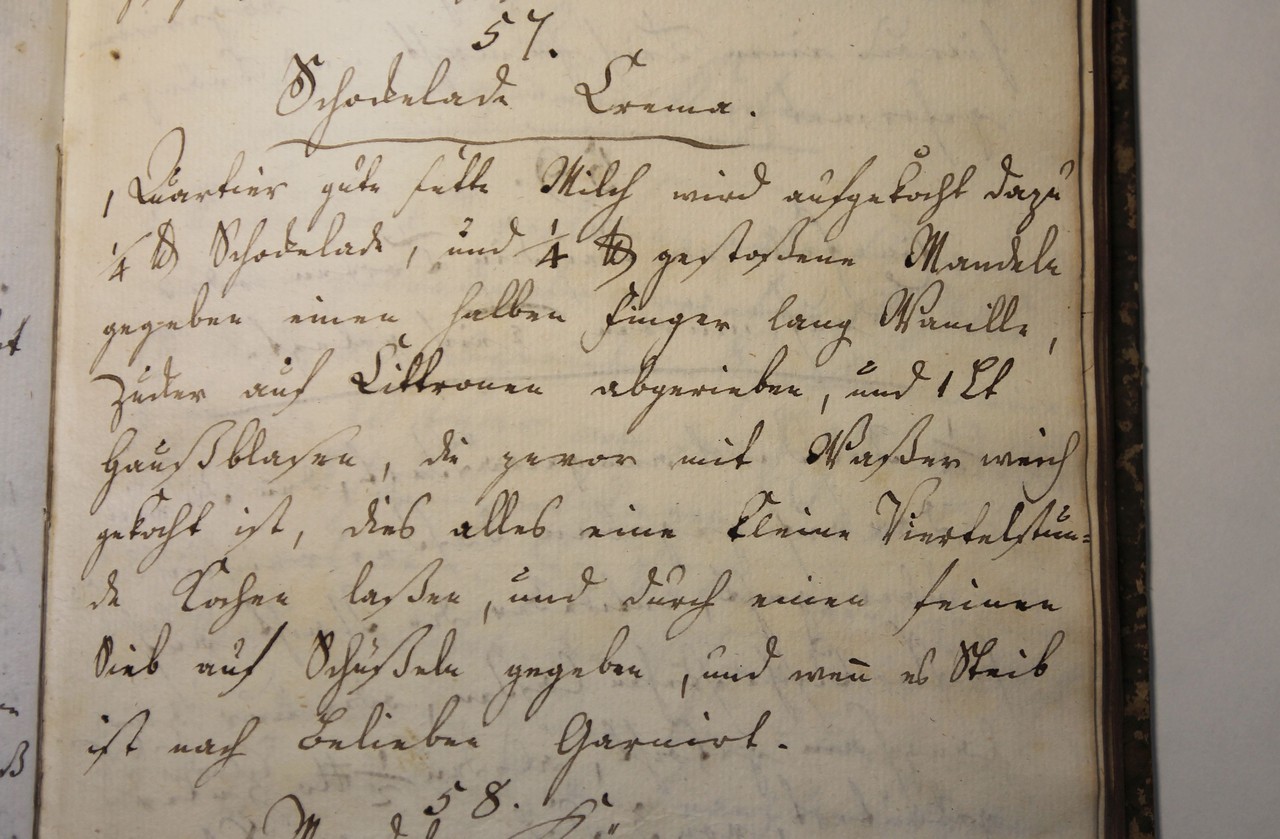 57.
Schockelade Crema.
1 Quartier gute fette Milch wird aufgekocht dazu
1/4 ℔ Schockelade, und 1/4 ℔ gestoßene Mandeln
gegeben einen halben Finger lang Vanille,
Zucker auf Cittronen abgerieben, und 1 Lt
Haußblasen, die zevor mit Waßer weich
gekocht ist, dies alles eine kleine Viertelstun=
de Kochen laßen, und durch einen feinen
Sieb auf Schüßeln gegeben, und wen̄ es Steib
ist nach Belieben Garnirt.
58.